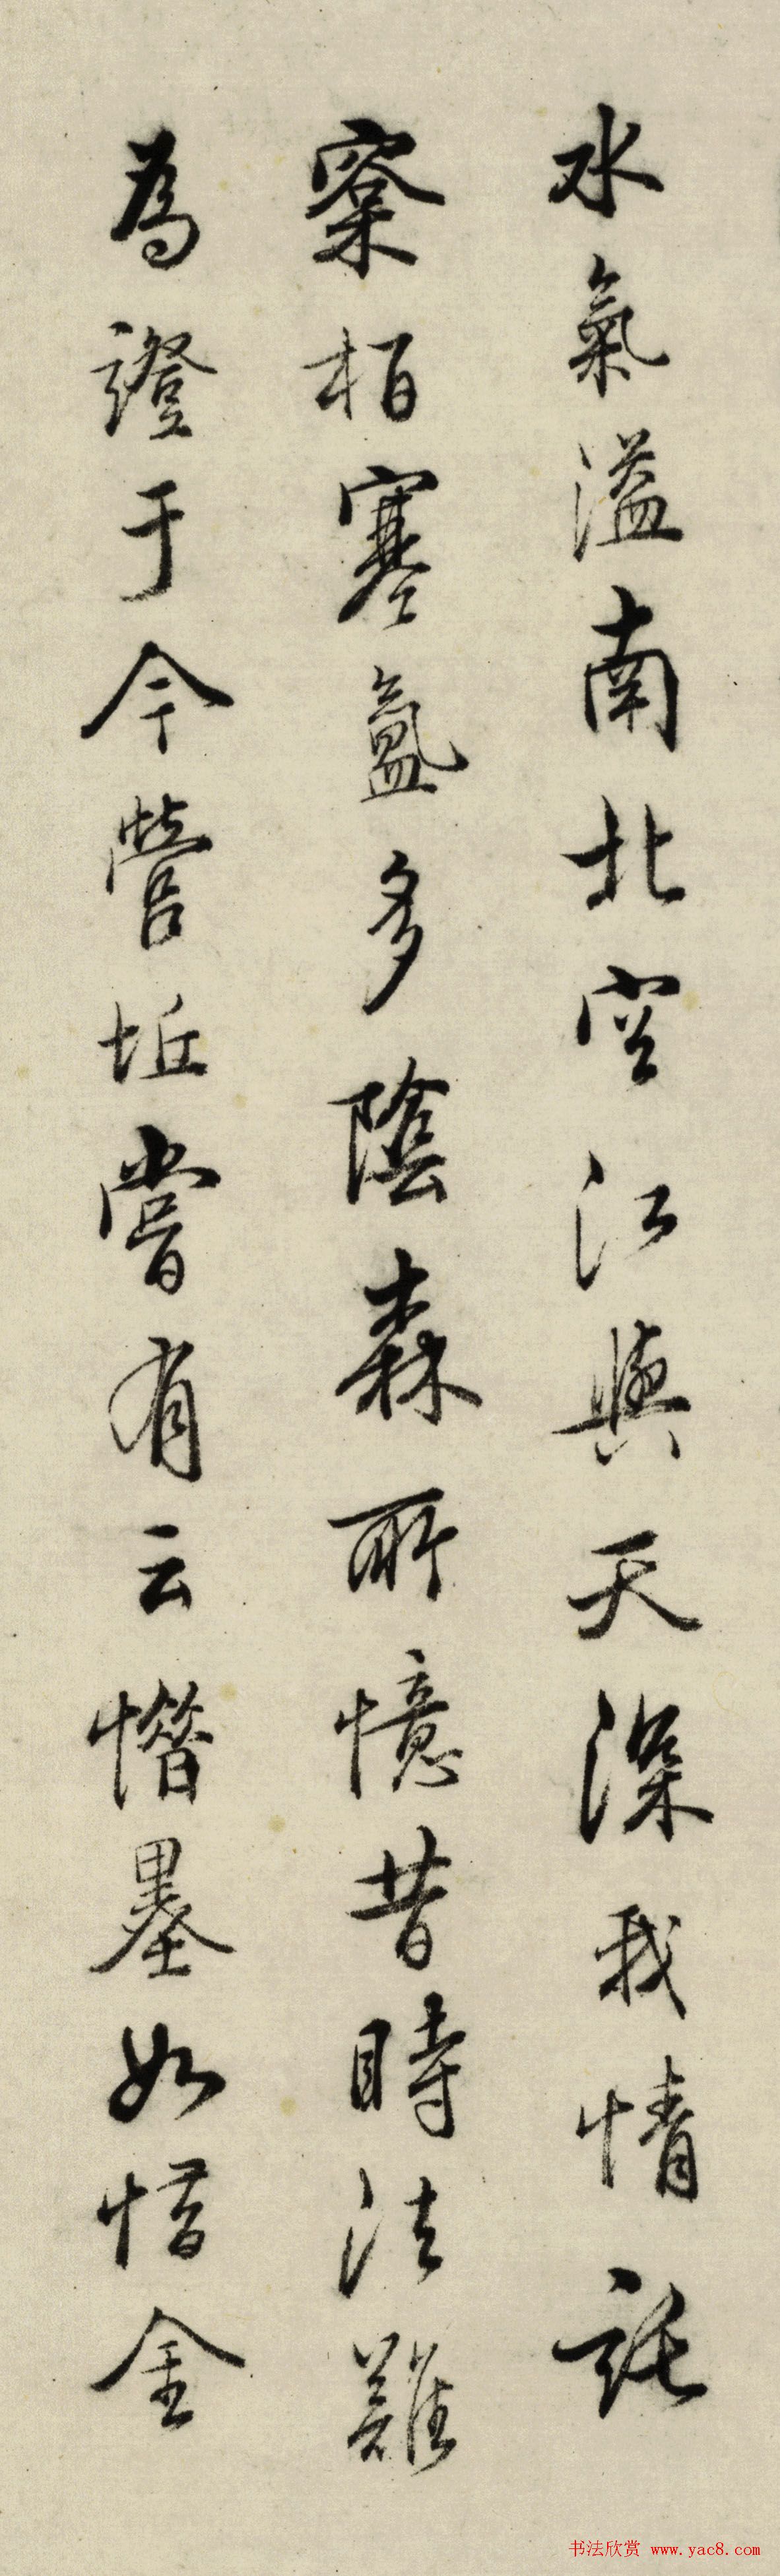 水氣溢南北空江與天深我情託
栢寒氳多陰森所憶昔時法難
為證于今營坵嘗有云憯墨如惜金
书法欣赏 www.yac8.com